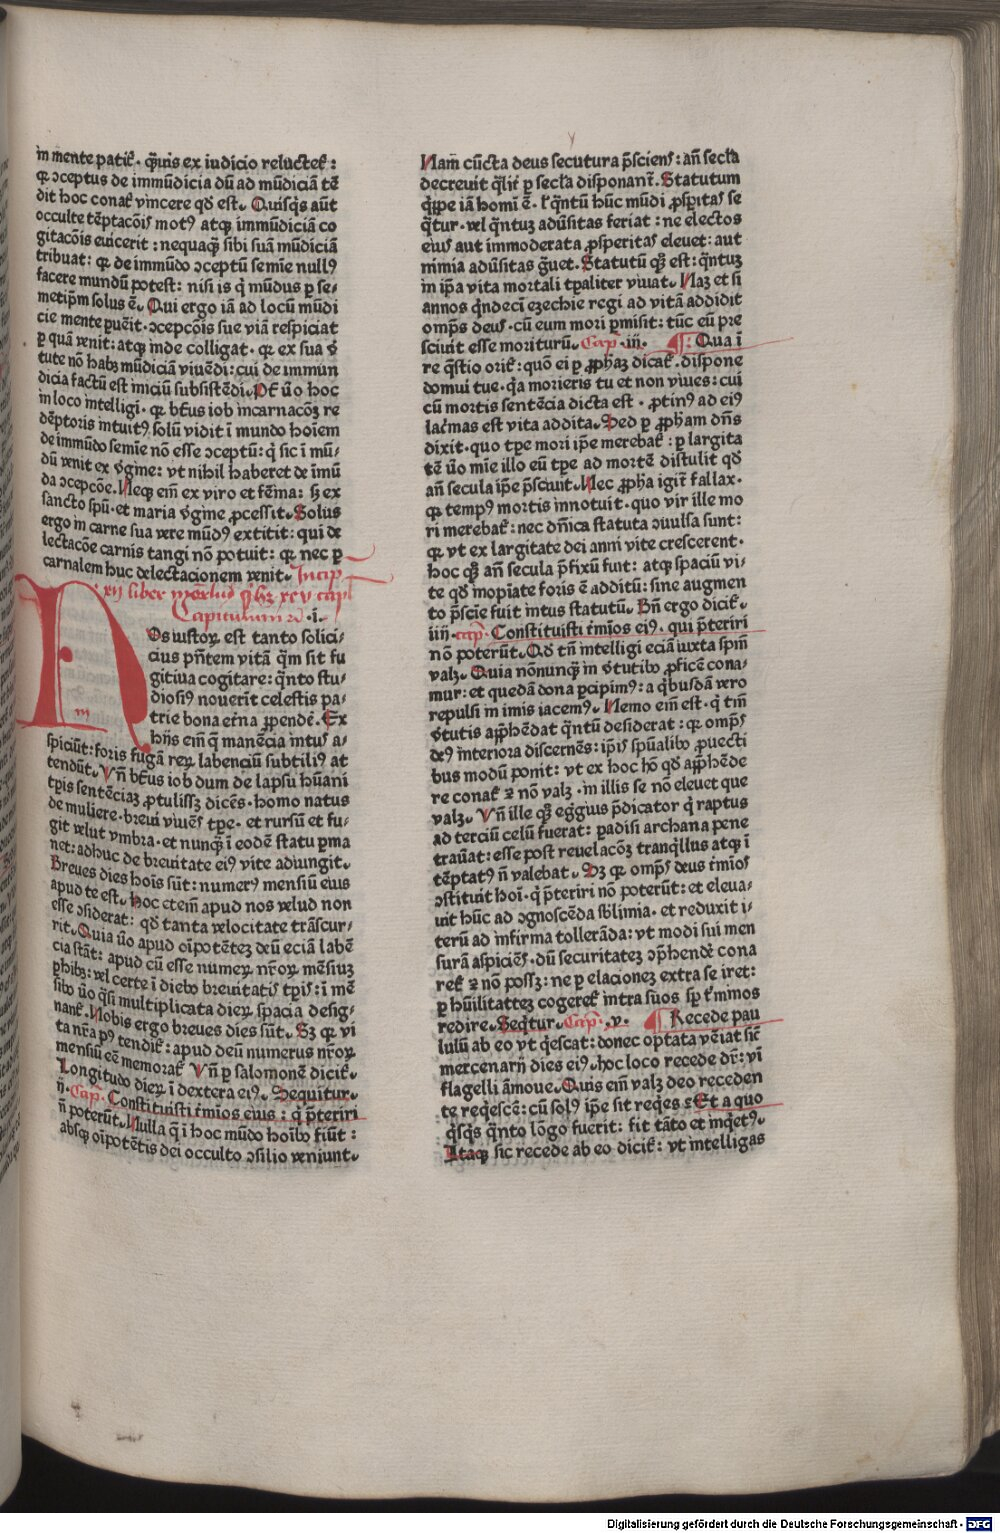 in mente patit᷑. q̄uis ex iudicio reluctet᷑:
qꝛ ↄceptus de immūdicia dū ad mūdiciā tē
dit hoc conat᷑ vincere qd̄ est. Quisq̄s aūt
occulte tēptacōis motꝰ atqꝫ immūdiciā co
gitacōis euicerit: nequaqꝫ sibi suā mūdiciā
tribuat: qꝛ de immūdo ↄceptū semīe nullꝰ
facere mundū potest: nisi is q̇ mūdus ꝑ se⸗
metip̄m solus ē. Qui ergo iā ad locū mūdi
cie mente puēit. ↄcepcōis sue viā respiciat
ꝑ quā venit: atqꝫ inde colligat. qꝛ ex sua v̄
tute nō habꝫ mūdiciā viuēdi: cui de immun
dicia factū est iniciū subsistēdi. Pt᷑ v̄o hoc
in loco intelligi. qꝛ bt̄us iob incarnacōꝫ re
dēptoris intuitꝰ solū vidit ī mundo hoīem
de immūdo semīe nō esse ↄceptū: q̇ sic ī mū⸗
dū venit ex v̄gīne: vt nihil haberet de īmū
da ↄcepcōe. Neqꝫ em̄ ex viro et fēina: sꝫ ex
sancto spū. et maria v̄gīne ꝓcessit. Solus
ergo in carne sua vere mūdꝰ extitit: qui de
lectacōe carnis tangi nō potuit: qꝛ nec ꝑ
carnalem huc delectacionem venit. Incip̄
xij liber
Capitulum .i.
Nos iustoꝝ est tanto solici⸗
cius p̄ntem vitā q̄m sit fu
gitiua cogitare: q̄nto stu⸗
diosiꝰ nouerīt celestis pa⸗
trie bona et̄na ꝑpendē. Ex
hijs em̄ q̄ manēcia intus a⸗
spiciūt: foris fugā reꝝ labenciū subtiliꝰ at
tendūt. Vn̄ bt̄us iob dum de lapsu hūani
tp̄is sentēciaꝫ ꝓtulissꝫ dicēs. homo natus
de muliere. breui viuēs tp̄e. et rursū et fu⸗
git velut vmbra. et nunq̄ ī eodē statu ꝑma
net: adhuc de breuitate eiꝰ vite adiungit.
Breues dies hoīs sūt: numerꝰ mensiū eius
apud te est. Hoc eteīm apud nos velud non
esse ↄsiderat: qd̄ tanta velocitate trāscur⸗
rit. Quia v̄o apud oīpotētez deū eciā labē
cia stāt: apud cū esse numeꝝ nr̄oꝝ mēsiuꝫ
ꝑhibꝫ: vel certe ī diebꝰ breuitatis tp̄is: ī mē
sibꝰ v̄o q̄si multiplicata dieꝝ spacia desig⸗
nant᷑. Nobis ergo breues dies sūt. Sꝫ qꝛ vi
ta nr̄a pꝰ tendit᷑: apud deū numerus nr̄oꝝ
mensiū eē memorat᷑. Vn̄ ꝑ salomonē dicit᷑.
Longitudo dieꝝ ī dextera eiꝰ. Sequitur.
ij. Cap̄. Constituisti t̄mīos eius: q̇ p̄teriri
n̄ poterūt. Nulla q̄ ī hoc mūdo hoībꝰ fiūt:
absqꝫ oīpotētis dei occulto ↄsilio veniunt.
Nam̄ cūcta deus secutura p̄sciens: an̄ secl̄a
decreuit q̄lit᷑ ꝑ secl̄a disponant᷑. Statutum
q̄ppe iā homī ē. l᷑ q̄ntū hūc mūdi ꝓspitas se
q̄tur. vel q̄ntuꝫ adūsitas feriat: ne electos
eius aut immoderata ꝓsperitas eleuet: aut
nimia adūsitas g̈uet. Statutū qꝫ est: q̄ntuꝫ
in ip̄a vita mortali tꝑaliter viuat. Naꝫ et si
annos q̄ndecī ezechie regi ad vitā addidit
omp̄s deus. cū eum mori ꝑmisit: tūc eū pre
sciuit esse moriturū. Cap̄. iij. ¶ Qua ī
re q̄stio orit᷑: quō ei ꝑ ꝓphaꝫ dicat᷑. dispone
domui tue. q̄a morieris tu et non viues: cui
cū mortis sentēcia dicta est. ꝓtinꝰ ad eiꝰ
lac̄mas est vita addita. Sed ꝑ ꝓpham dn̄s
dixit. quo tꝑe mori ip̄e merebat᷑: ꝑ largita
tē v̄o mīe illo eū tꝑe ad mortē distulit qd̄
an̄ secula ip̄e p̄sciuit. Nec ꝓpha igit᷑ fallax.
qꝛ tempꝰ mortis innotuit. quo vir ille mo
ri merebat᷑: nec dn̄ica statuta ↄuulsa sunt:
qꝛ vt ex largitate dei anni vite crescerent.
hoc qꝫ an̄ secula p̄fixū fuit: atqꝫ spaciū vi⸗
te qd̄ inopiate foris ē additū: sine augmen
to p̄scīe fuit intus statutū. Bn̄ ergo dicit᷑.
iiij. cap̄. Constituisti t̄mīos eiꝰ. qui p̄teriri
nō poterūt. Qd̄ tn̄ intelligi eciā iuxta spm̄
valꝫ. Quia nōnunqꝫ in v̄tutibꝰ ꝓficē cona⸗
mur: et quedā dona ꝑcipimꝰ: a q̇busdā vero
repulsi in imis iacemꝰ. Nemo em̄ est. q̇ tm̄
v̄tutis apꝑhēdat q̄ntū desiderat: qꝛ omp̄s
deꝰ interiora discernēs: ip̄is spūalibꝰ ꝓuecti
bus modū ponit: vt ex hoc hō qd̄ apꝑhēde
re conat᷑ ⁊ nō valꝫ. in illis se nō eleuet que
valꝫ. Vn̄ ille qꝫ eggius p̄dicator q̇ raptus
ad terciū celū fuerat: ꝑadisi archana pene
trauāt: esse post reuelacōꝫ tranq̇llus atqꝫ ī
tēptatꝰ n̄ valebat. Sꝫ qꝛ omp̄s deus t̄mīos
ↄstituit hoī. q̇ p̄teriri nō poterūt: et eleua⸗
uit hūc ad ↄgnoscēda sb̄limia. et reduxit i⸗
terū ad infirma tollerāda: vt modi sui men
surā aspiciēs. dū securitatez ↄp̄hendē cona
ret᷑ ⁊ nō possꝫ: ne ꝑ elacionez extra se iret:
ꝑ hūilitatteꝫ cogeret᷑ intra suos sp̄ t᷑minos
redire. Seq̄tur. Cap̄. v. ¶ Recede pau
lulū ab eo vt q̇escat: donec optata vēiat sic᷑
mercenarij dies eiꝰ. hoc loco recede dr̄: vī
flagelli āmoue. Quis em̄ valꝫ deo receden
te req̇escē: cū solꝰ ip̄e sit req̇es: Et a quo
q̇sq̇s q̄nto lōgo fuerit: fit tāto et inq̇etꝰ.
Itaqꝫ sic recede ab eo dicit᷑: vt intelligas
Digitalisierung gefördert durch die Deutsche Forschungsgemeinschaft - DFG